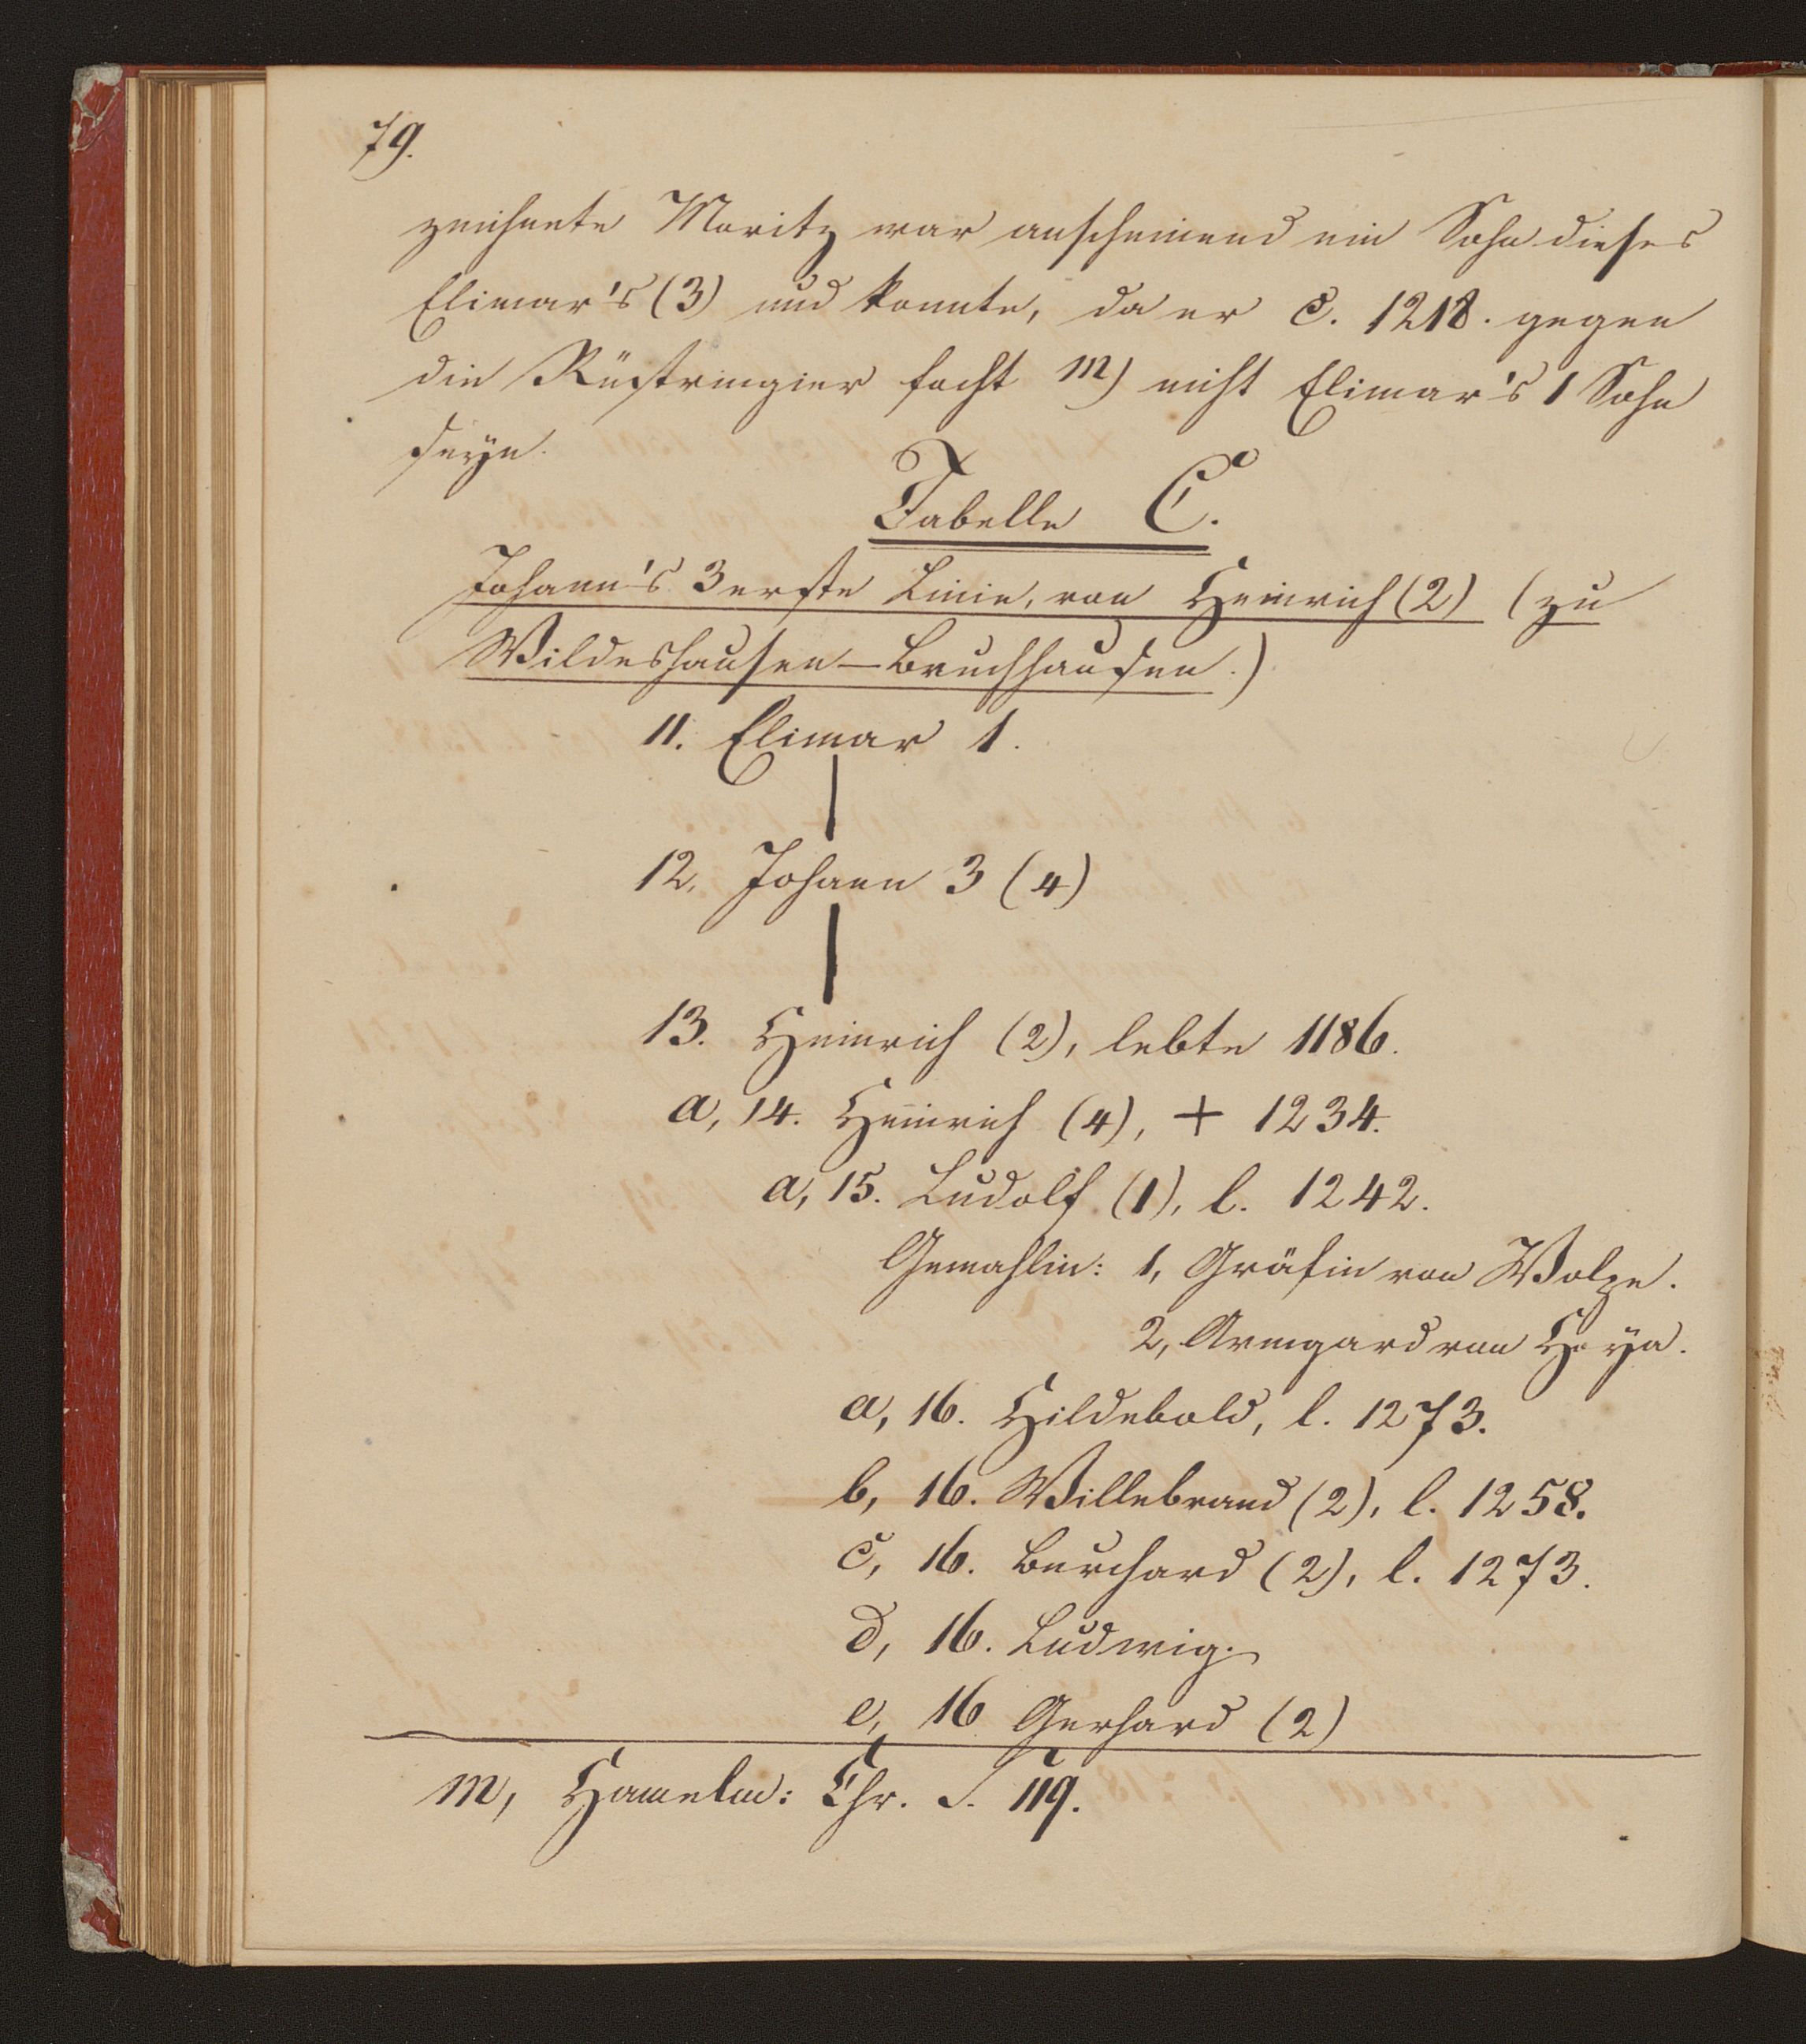 79.
zeichnete Moritz war anscheinend ein Sohn dieses
Elimar's (3) und konnte, da er c. 1218. gegen
die Rüstringier focht m) nicht Elimar's 1 Sohn
seyn.
Tabelle C.
Johann's 3 erste Linie, von Heinrich (2) (zu
Wildeshausen-Bruchhausen.)
11. Elimar 1.
12. Johann 3 (4)
13. Heinrich (2), lebte 1186.
a, 14. Heinrich (4), + 1234.
a, 15. Ludolf (1), l. 1242.
Gemahlin: 1, Gräfin von Wolpe.
2, Armgard von Hoya.
a, 16. Hildebold, l. 1273.
b, 16. Willebrand (2), l. 1258.
c, 16. Burchard (2), l. 1273.
d, 16. Ludwig.
e, 16 Gerhard (2)
m, Hamelm: Chr. S. 119.